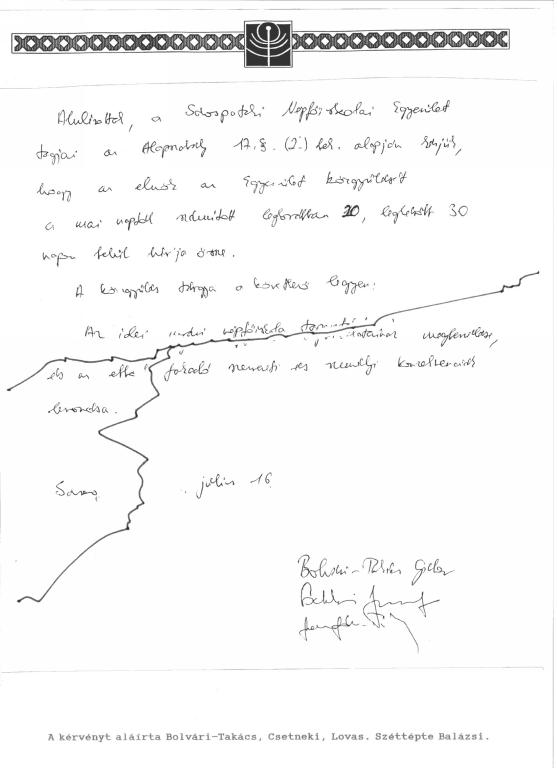 Alulírottak, a Sárospataki Népfőiskolai Egyesület
tagjai az Alapszabály 17.§. (2.) bek. alapján kérjük,
hogy az elnök az Egyesület közgyűlését
a mai naptól számított legkorábban 20, legkésőbb 30
napon belül hívja össze.
A közgyűlés tárgya a következő legyen:
Az idei népfőiskola
és az fakadó nemzeti és személyi konzekvenciák
levonása.
július 16
Bolvári-Takács Gábor
A kérvényt aláírta Bolvári-Takács, Csetneki, Lovas. Széttépte Balázsi.